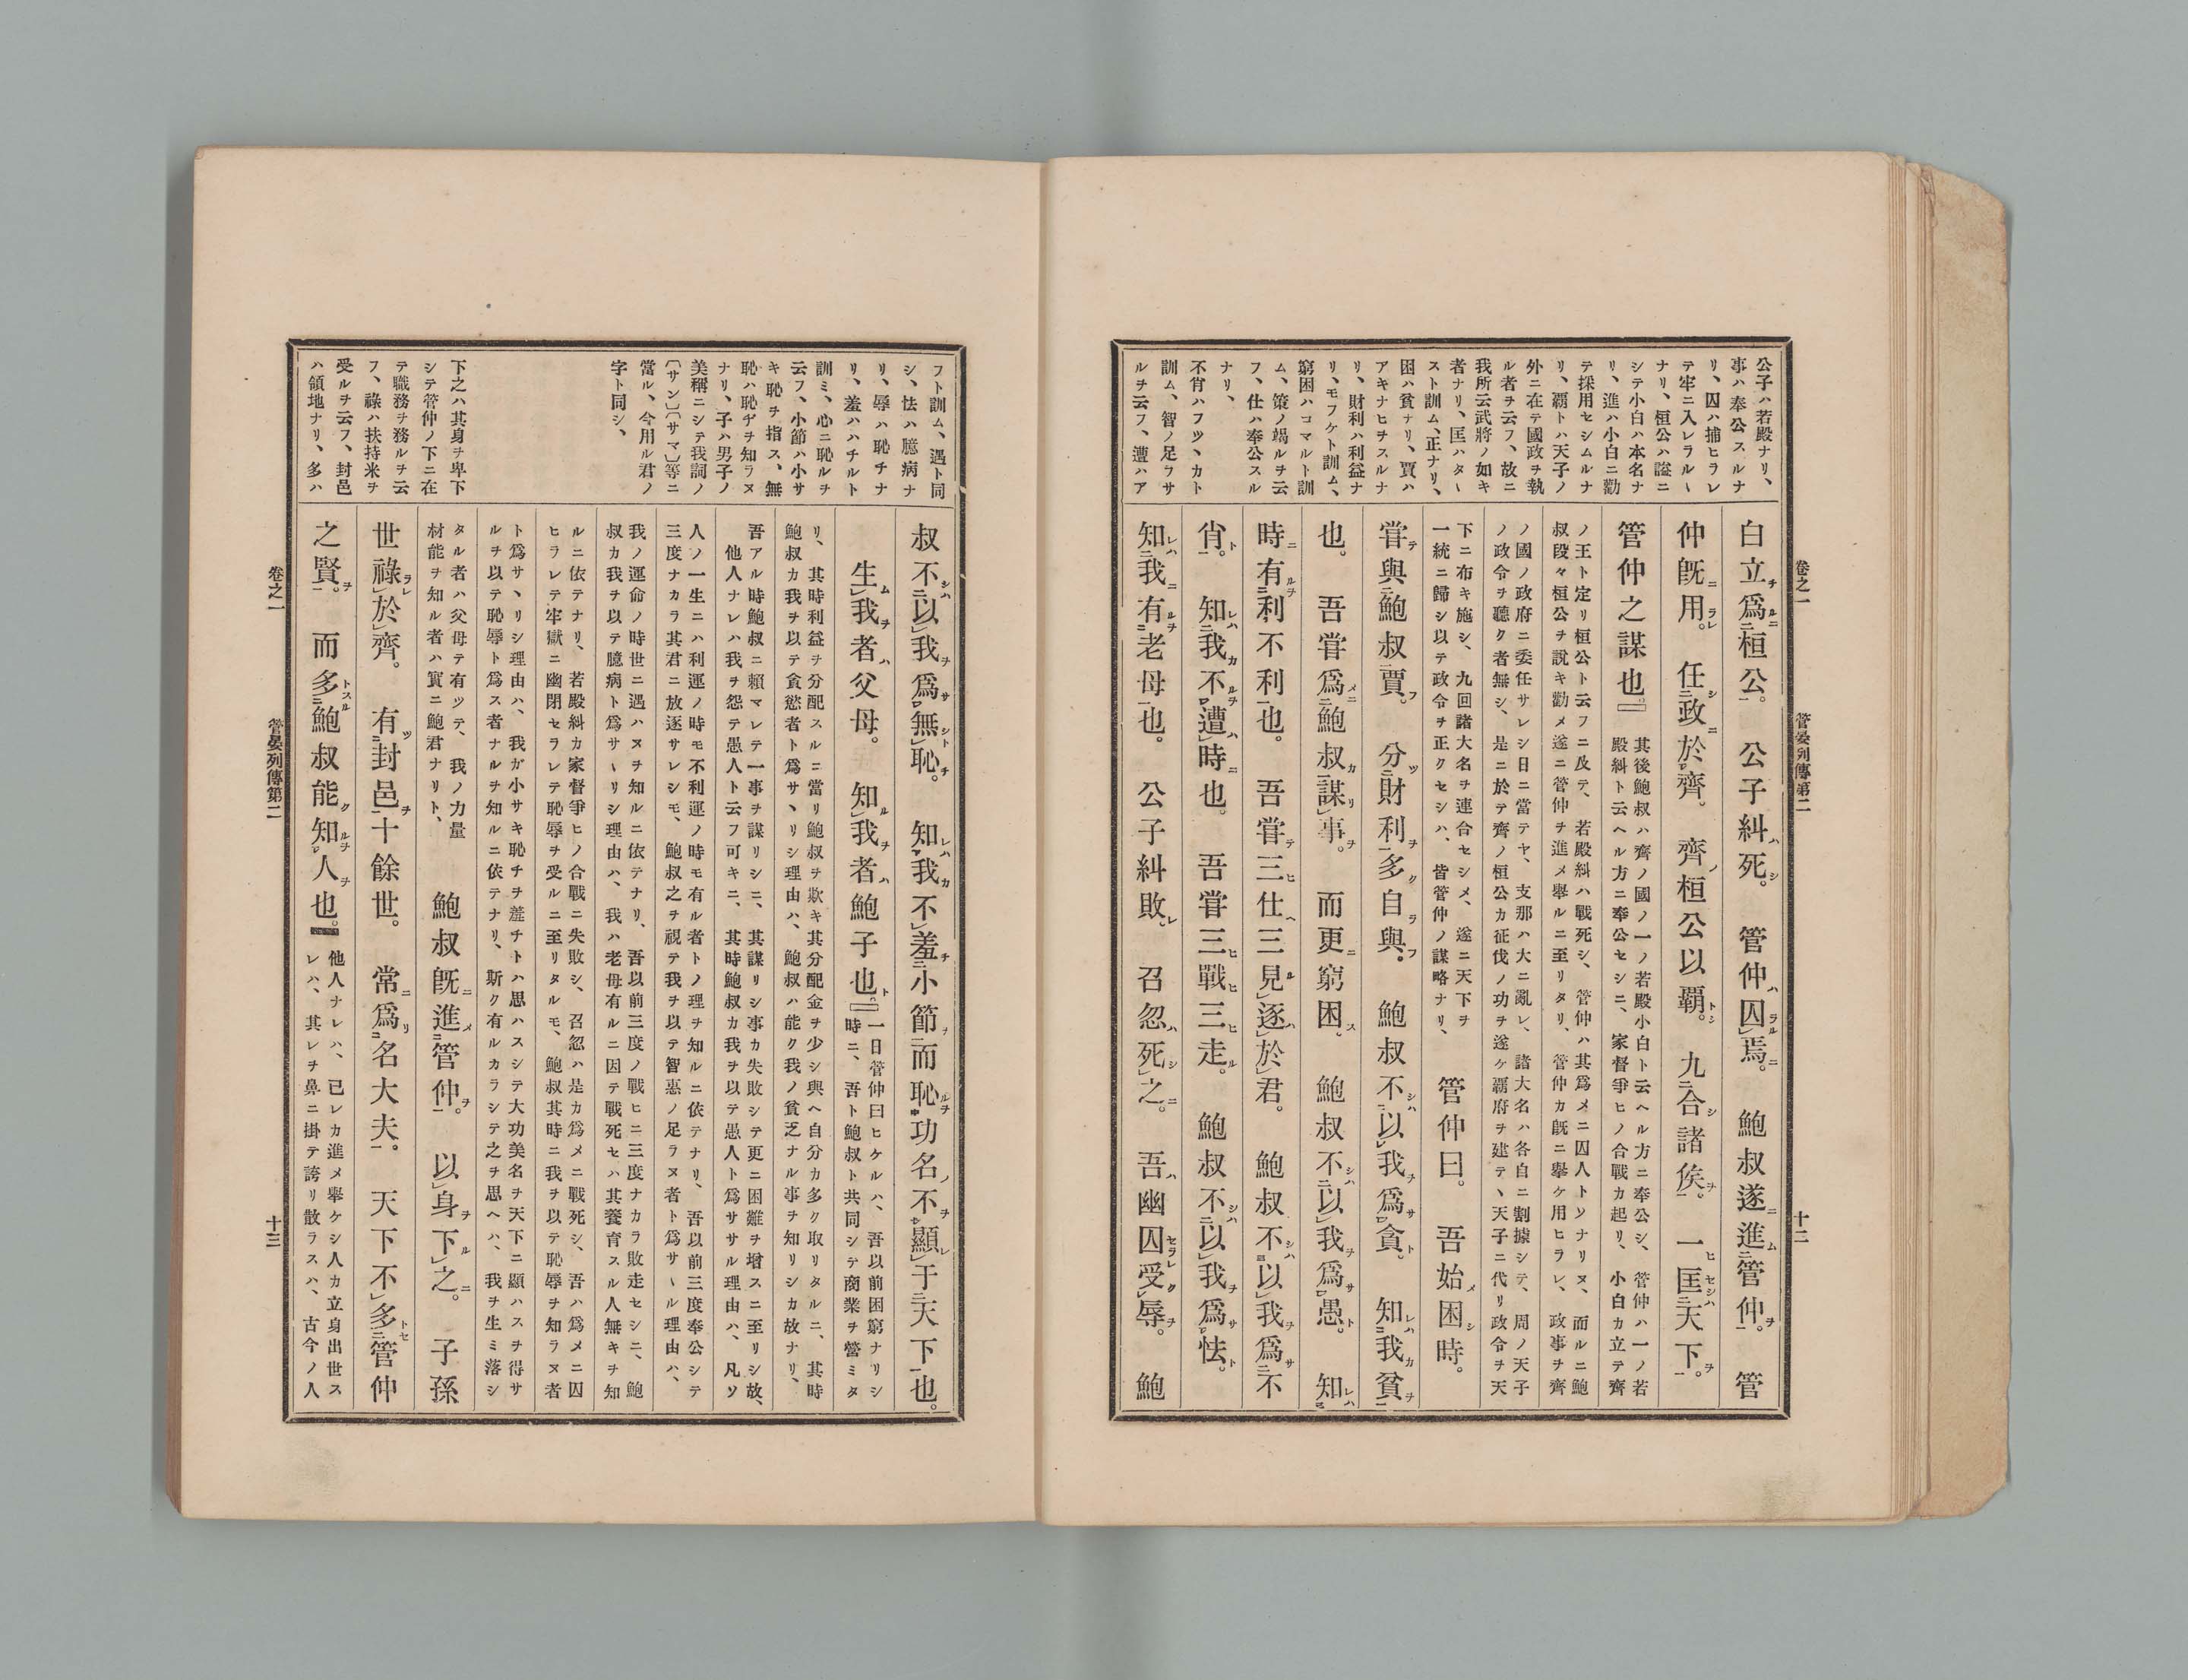 公子ハ若殿ナリ、
事ハ奉公スルナ
リ、囚ハ捕ヒラレ
テ牢ニ入レラルヽ
ナリ、桓公ハ謚ニ
シテ小白ハ本名ナ
リ、進ハ小白ニ勸
テ採用セシムルナ
リ、覇トハ天子ノ
外ニ在テ國政ヲ執
ル者ヲ云フ、故ニ
我所云武將ノ如キ
者ナリ、匡ハタヽ
スト訓ム、正ナリ、
困ハ貧ナリ、賈ハ
アキナヒヲスルナ
リ、財利ハ利益ナ
リ、モフケト訓ム、
窮困ハコマルト訓
ム、策ノ竭ルヲ云
フ、仕ハ奉公スル
ナリ、
不肖ハフツヽカト
訓ム、智ノ足ラサ
ルヲ云フ、遭ハア
白立爲桓公。公子糾死。管仲囚焉。鮑叔遂進管仲。管
仲旣用。任政於齊。齊桓公以覇。九合諸侯。一匡天下。
管仲之謀也。
其後鮑叔ハ齊ノ國ノ一ノ若殿小白ト云ヘル方ニ奉公シ、管仲ハ一ノ若
殿糾ト云ヘル方ニ奉公セシニ、家督爭ヒノ合戰カ起リ、小白カ立テ齊
ノ王ト定リ桓公ト云フニ及テ、若殿糾ハ戰死シ、管仲ハ其爲メニ囚人トソナリヌ、而ルニ鮑
叔段々桓公ヲ說キ勸メ遂ニ管仲ヲ進メ擧ルニ至リタリ、管仲カ旣ニ擧ケ用ヒラレ、政事ヲ齊
ノ國ノ政府ニ委任サレシ日ニ當テヤ、支那ハ大ニ亂レ、諸大名ハ各自ニ割據シテ、周ノ天子
ノ政令ヲ聽ク者無シ、是ニ於テ齊ノ桓公カ征伐ノ功ヲ遂ケ覇府ヲ建テヽ天子ニ代リ政令ヲ天
下ニ布キ施シ、九回諸大名ヲ連合セシメ、遂ニ天下ヲ
一統ニ歸シ以テ政令ヲ正クセシハ、皆管仲ノ謀略ナリ、
管仲曰。吾始困時。
甞與鮑叔賈。分財利多自與。鮑叔不以我爲貪。知我貧
也。吾甞爲鮑叔謀事。而更窮困。鮑叔不以我爲愚。知
時有利不利也。吾甞三仕三見逐於君。鮑叔不以我爲不
肖。知我不遭時也。吾甞三戰三走。鮑叔不以我爲怯。
知我有老母也。公子糾敗。召忽死之。吾幽囚受辱。鮑
卷之一　管晏列傳第二　十二
フト訓ム、遇ト同
シ、怯ハ臆病ナ
リ、辱ハ恥チナ
リ、羞ハハチルト
訓ミ、心ニ恥ルヲ
云フ、小節ハ小サ
キ恥ヲ指ス、無
恥ハ恥ヂヲ知ラヌ
ナリ、子ハ男子ノ
美稱ニシテ我詞ノ
〔サン〕〔サマ〕等ニ
當ル、今用ル君ノ
字ト同シ、
下之ハ其身ヲ卑下
シテ管仲ノ下ニ在
テ職務ヲ務ルヲ云
フ、祿ハ扶持米ヲ
受ルヲ云フ、封邑
ハ領地ナリ、多ハ
叔不以我爲無恥。知我不羞小節而恥功名不顯于天下也。
生我者父母。知我者鮑子也。
一日管仲曰ヒケルハ、吾以前困窮ナリシ
時ニ、吾ト鮑叔ト共同シテ商業ヲ營ミタ
リ、其時利益ヲ分配スルニ當リ鮑叔ヲ欺キ其分配金ヲ少シ與ヘ自分カ多ク取リタルニ、其時
鮑叔カ我ヲ以テ貪慾者ト爲サヽリシ理由ハ、鮑叔ハ能ク我ノ貧乏ナル事ヲ知リシカ故ナリ、
吾アル時鮑叔ニ賴マレテ一事ヲ謀リシニ、其謀リシ事カ失敗シテ更ニ困難ヲ增スニ至リシ故、
他人ナレハ我ヲ怨テ愚人ト云フ可キニ、其時鮑叔カ我ヲ以テ愚人ト爲ササル理由ハ、凡ソ
人ノ一生ニハ利運ノ時モ不利運ノ時モ有ル者トノ理ヲ知ルニ依テナリ、吾以前三度奉公シテ
三度ナカラ其君ニ放逐サレシモ、鮑叔之ヲ視テ我ヲ以テ智惠ノ足ラヌ者ト爲サヽル理由ハ、
我ノ運命ノ時世ニ遇ハヌヲ知ルニ依テナリ、吾以前三度ノ戰ヒニ三度ナカラ敗走セシニ、鮑
叔カ我ヲ以テ臆病ト爲サヽリシ理由ハ、我ハ老母有ルニ因テ戰死セハ其養育スル人無キヲ知
ルニ依テナリ、若殿糾カ家督爭ヒノ合戰ニ失敗シ、召忽ハ是カ爲メニ戰死シ、吾ハ爲メニ囚
ヒラレテ牢獄ニ幽閉セラレテ恥辱ヲ受ルニ至リタルモ、鮑叔其時ニ我ヲ以テ恥辱ヲ知ラヌ者
ト爲サヽリシ理由ハ、我ガ小サキ恥チヲ羞チトハ思ハスシテ大功美名ヲ天下ニ顯ハスヲ得サ
ルヲ以テ恥辱ト爲ス者ナルヲ知ルニ依テナリ、斯ク有ルカラシテ之ヲ思ヘハ、我ヲ生ミ落シ
タル者ハ父母テ有ツテ、我ノ力量
材能ヲ知ル者ハ實ニ鮑君ナリト、
鮑叔旣進管仲。以身下之。子孫
世祿於齊。有封邑十餘世。常爲名大夫。天下不多管仲
之賢。而多鮑叔能知人也。
他人ナレハ、已レカ進メ擧ケシ人カ立身出世ス
レハ、其レヲ鼻ニ掛テ誇リ散ラスハ、古今ノ人
卷之一　管晏列傳第二　十三